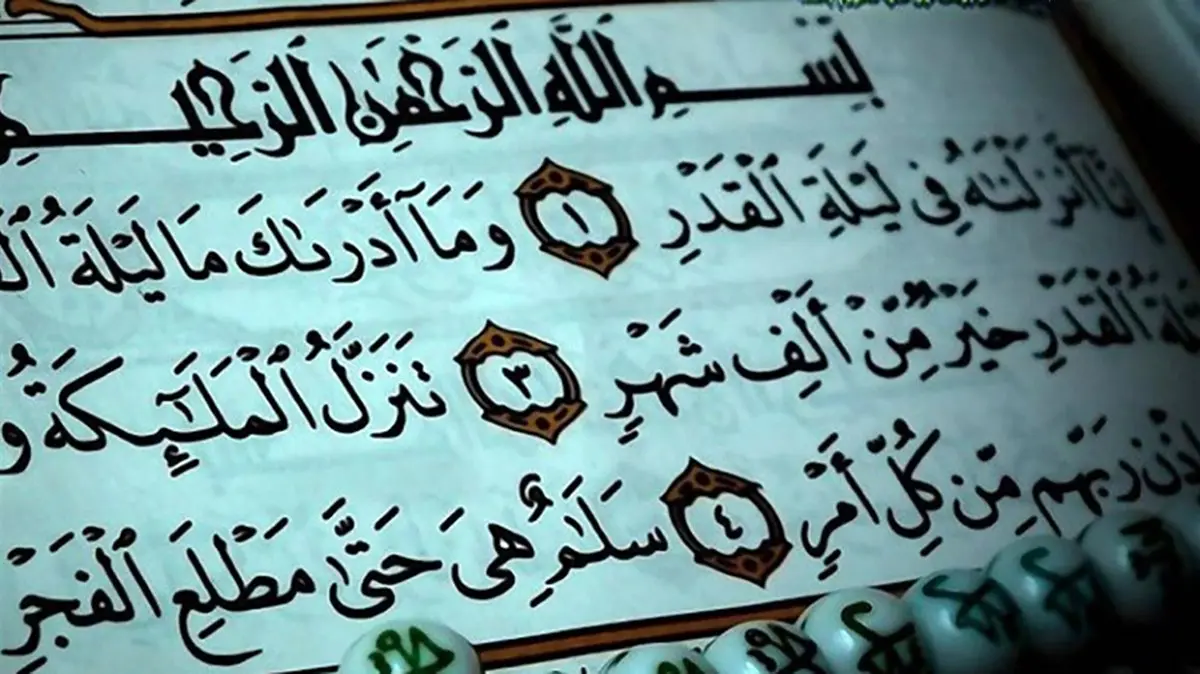 بِسْمِ ٱللَّهِ ٱلرَّحْمَٰنِ ٱلرَّحِيمِ
إِنَّآ أَنزَلْنَٰهُ فِى لَيْلَةِ ٱلْقَدْرِ ١ وَمَآ أَدْرَىٰكَ مَا لَيْلَةُ
ٱلْقَدْرِ خَيْرٌ مِّنْ أَلْفِ شَهْرٍ ٣ تَنَزَّلُ ٱلْمَلَٰٓئِكَةُ وَ
رَبِّهِم مِّن كُلِّ أَمْرٍ ٤ سَلَٰمٌ هِىَ حَتَّىٰ مَطْلَعِ ٱلْفَجْرِ